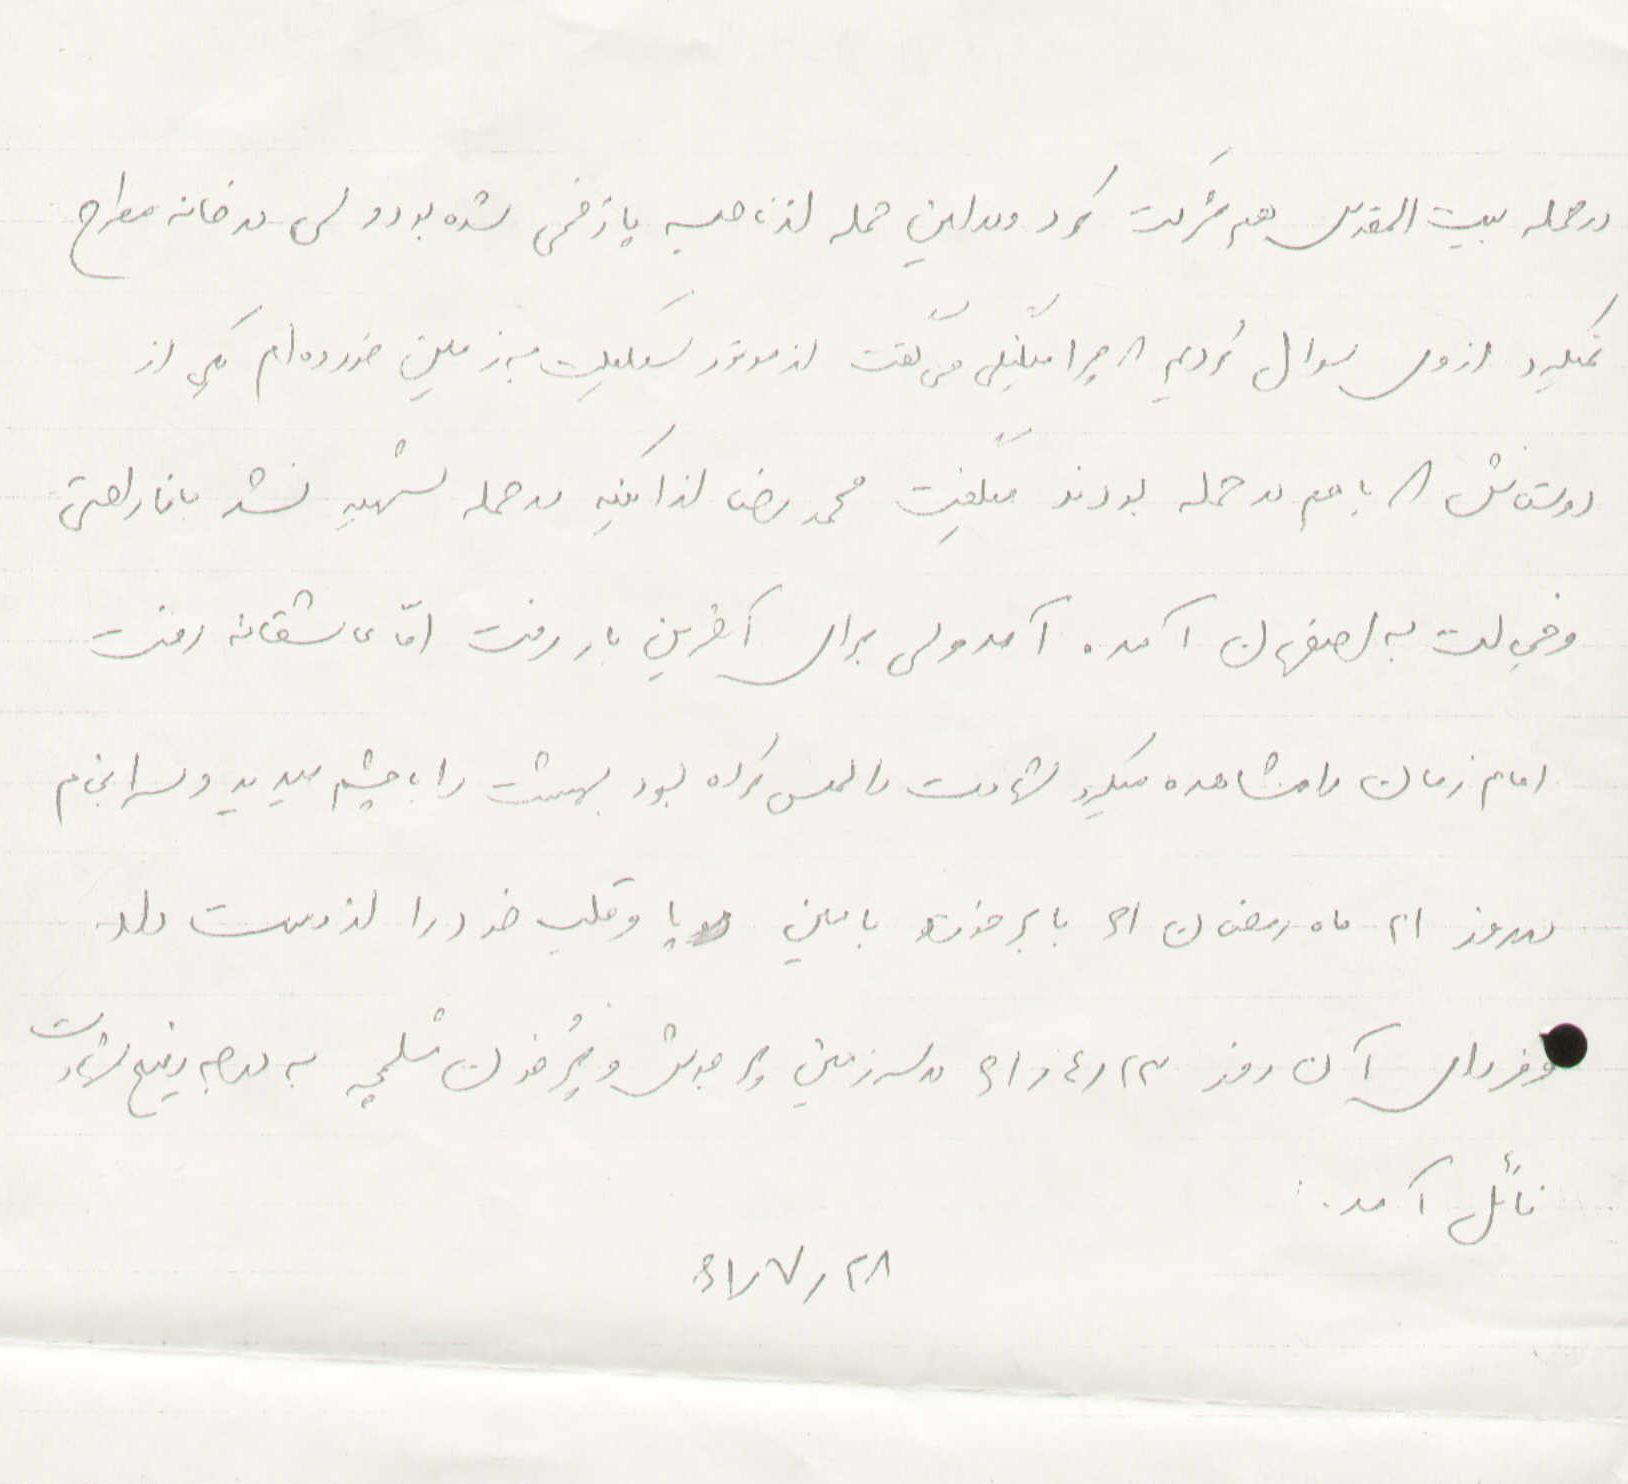 در حمله بیت المقدس هم شرکت کرد و در این حمله از ناحیه پا زخمی شده بود ولی در خانه مطرح
نمیکرد از وی سوال کردیم که چرا میلنگی می گفت از موتور سیکلیت به زمین خورده ام یکی از
دوستانش که با هم در حمله بودند میگفت محمد رضا از اینکه در حمله شهید نشد با ناراحتی
و خجالت به اصفهان آمده. آمد ولی برای آخرین بار رفت امّا عاشقانه رفت
امام زمان را مشاهده میکرد شهادت را لمس کرده بود بهشت را با چشم میدید و سرانجام
در روز ۲۱ ماه رمضان ۶۱ با برخورد با مین پا و قلب خود را از دست داد
و فردای آن روز ۲۳ر۴ر۶۱ در سرزمین پر جوش و پُر خون شلمچه به درجه رفیع شهادت
نائل آمد.
۲۸ر۷ر۶۱